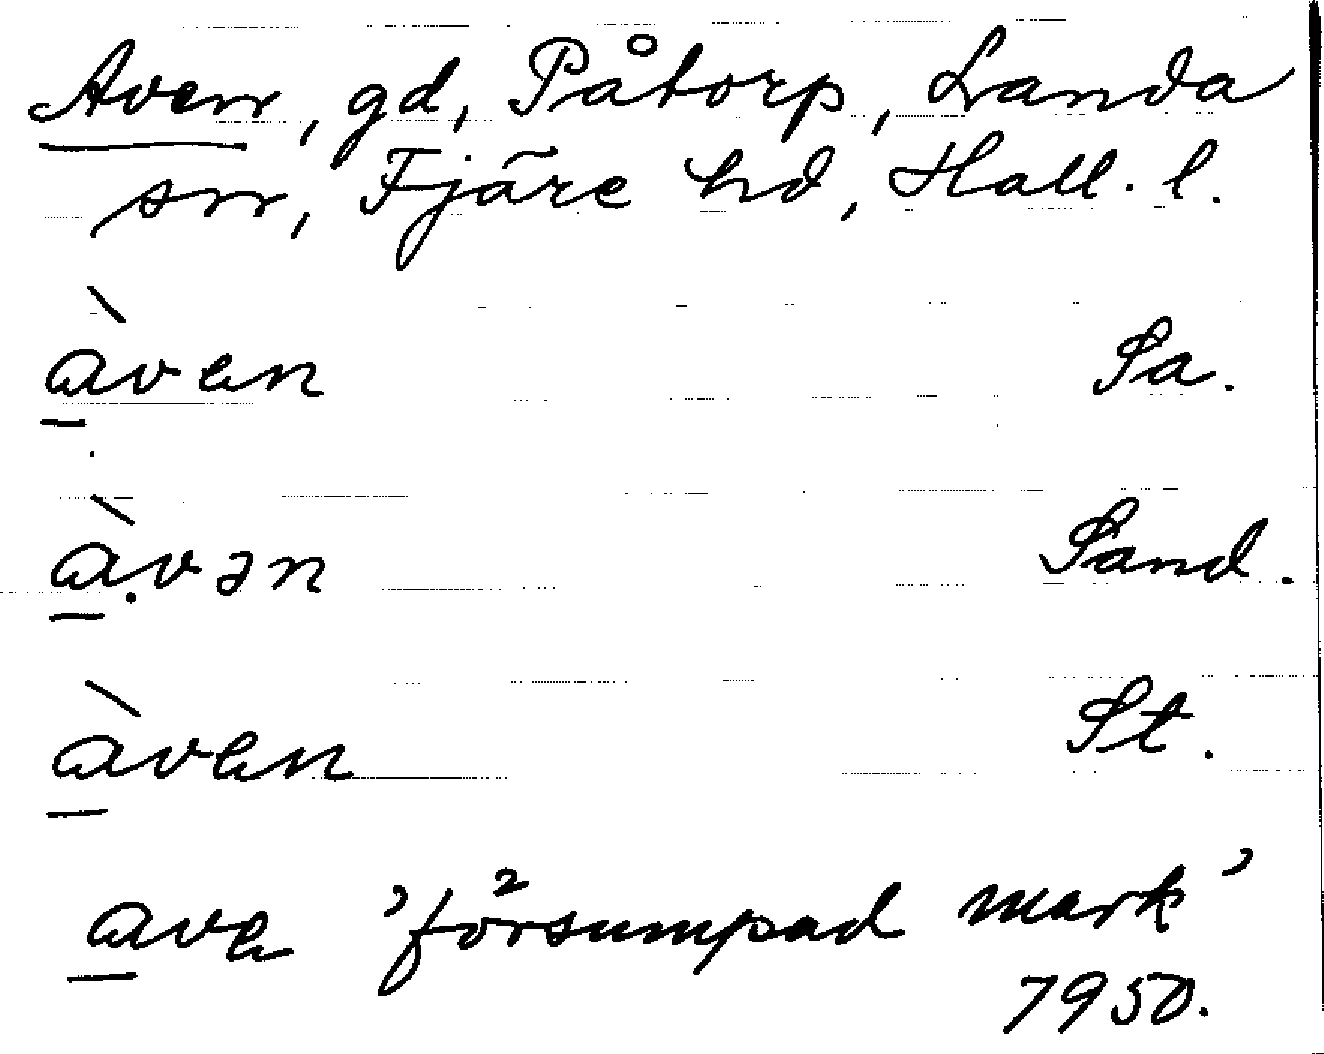 Aven, gd, Påtorp, Landa
sn, Fjäre hd, Hall. l.
àven Sa.
àvən Sand.
àven St.
ave 'försumpad mark'
1950.